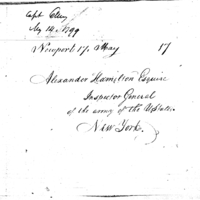 Capt
May 14. 1799
Newport 17. May 17
Alexander Hamilton Esquire
Inspector General
of the army of the UStates
New York.